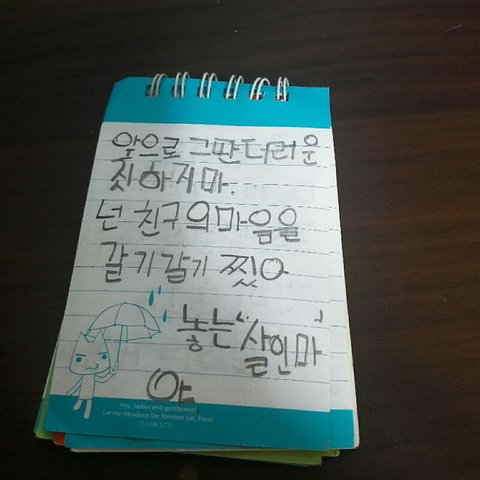 앞으로 그딴더러운
짓하지마.
넌 친구의마음을
갈기갈기 찢아
놓는 "살인마"
야.
Hey, ladies and gentlemen!
Let me introduce the funniest cat, Toro!